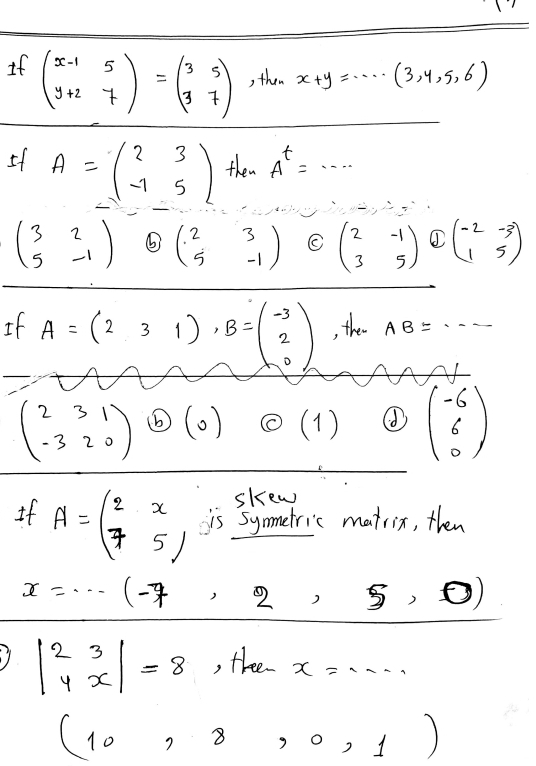 If (x-1 5 / y+2 7) = (3 5 / 3 7) , then x+y = ..... (3,4,5,6)
If A = (2 3 / -1 5) then A^t = ....
(3 2 / 5 -1) ⓑ (2 3 / 5 -1) ⓒ (2 -1 / 3 5) ⓓ (-2 -3 / 1 5)
If A = (2 3 1) , B = (-3 / 2 / 0) , then AB = ....
(2 3 1 / -3 2 0) ⓑ (0) ⓒ (1) ⓓ (-6 / 6 / 0)
skew
If A = (2 x / 7 5) is Symmetric matrix, then
x = ... (-7 , 2 , 5 , 0)
|2 3 / 4 x| = 8 , then x = .....
(10 , 8 , 0 , 1)